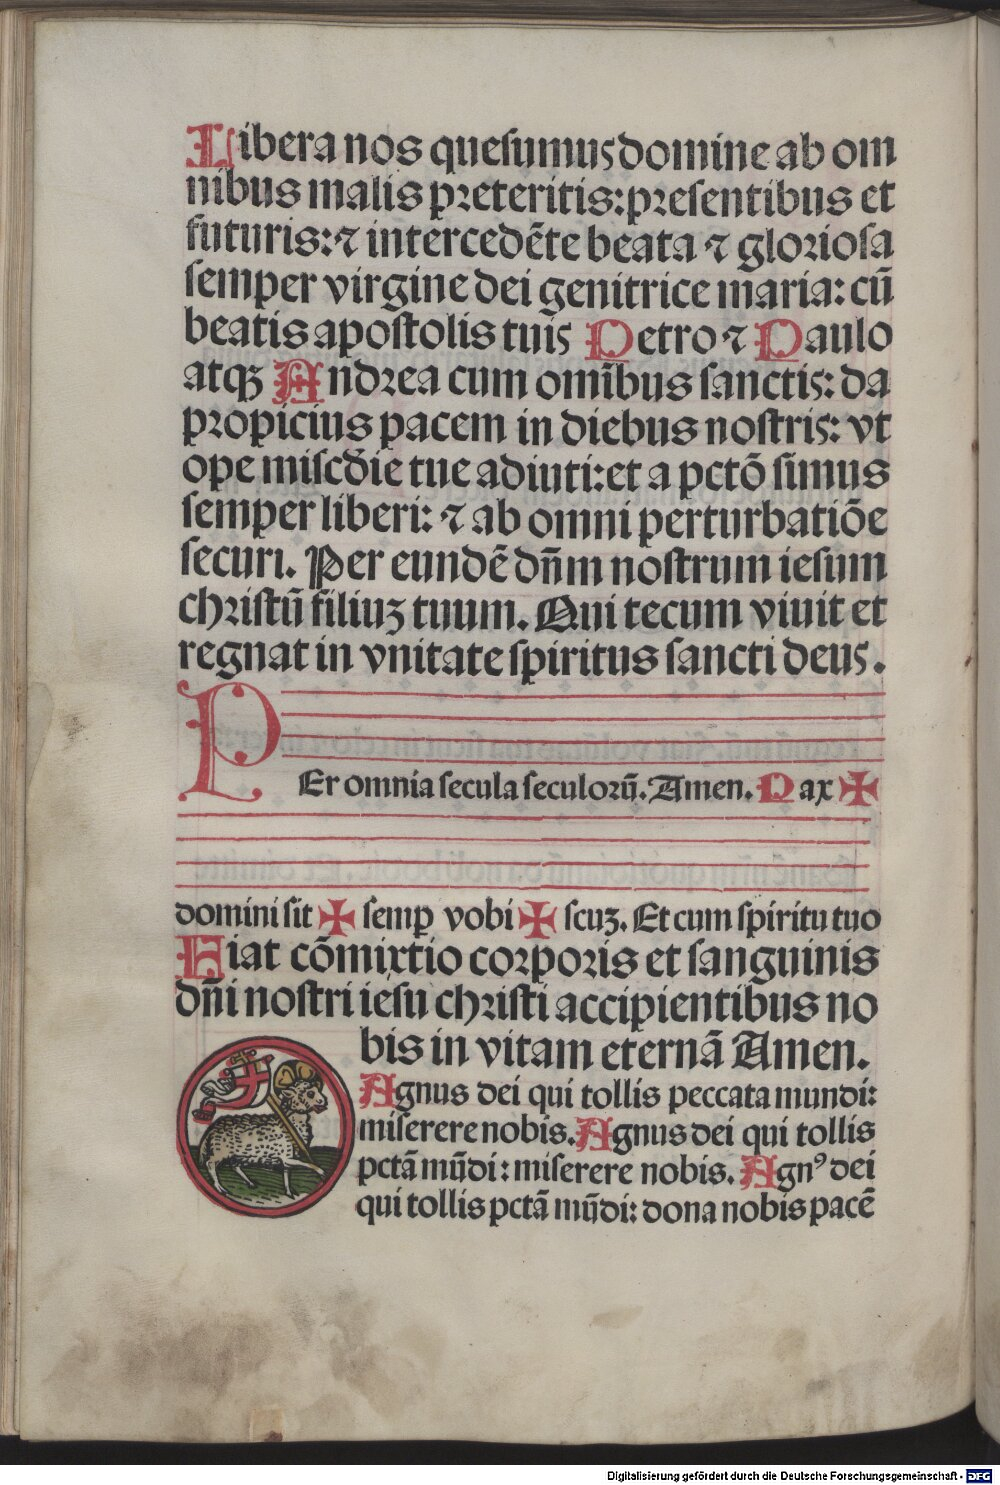 Libera nos quesumus domine ab om
nibus malis preteritis: presentibus et
futuris: ⁊ intercedẽte beata ⁊ gloriosa
semper virgine dei genitrice maria: cũ
beatis apostolis tuis Petro ⁊ Paulo
atqꝫ Andrea cum omĩbus sanctis: da
propicius pacem in diebus nostris: vt
ope misc̄die tue adiuti: et a pctõ simus
semper liberi: ⁊ ab omni perturbatiõe
securi. Per eundẽ dñm nostrum iesum
christũ filiuꝫ tuum. Qui tecum viuit et
regnat in vnitate spiritus sancti deus.
PEr omnia secula seculorũ. Amen. Pax ✠
domini sit ✠ semp̱ vobi ✠ scuꝫ. Et cum spiritu tuo
Fiat cõmixtio corporis et sanguinis
dñi nostri iesu christi accipientibus no
bis in vitam eternã Amen.
Agnus dei qui tollis peccata mundi:
miserere nobis. Agnus dei qui tollis
pctã mũdi: miserere nobis. Agnꝰ dei
qui tollis pctã mũdi: dona nobis pacẽ
Digitalisierung gefördert durch die Deutsche Forschungsgemeinschaft - DFG